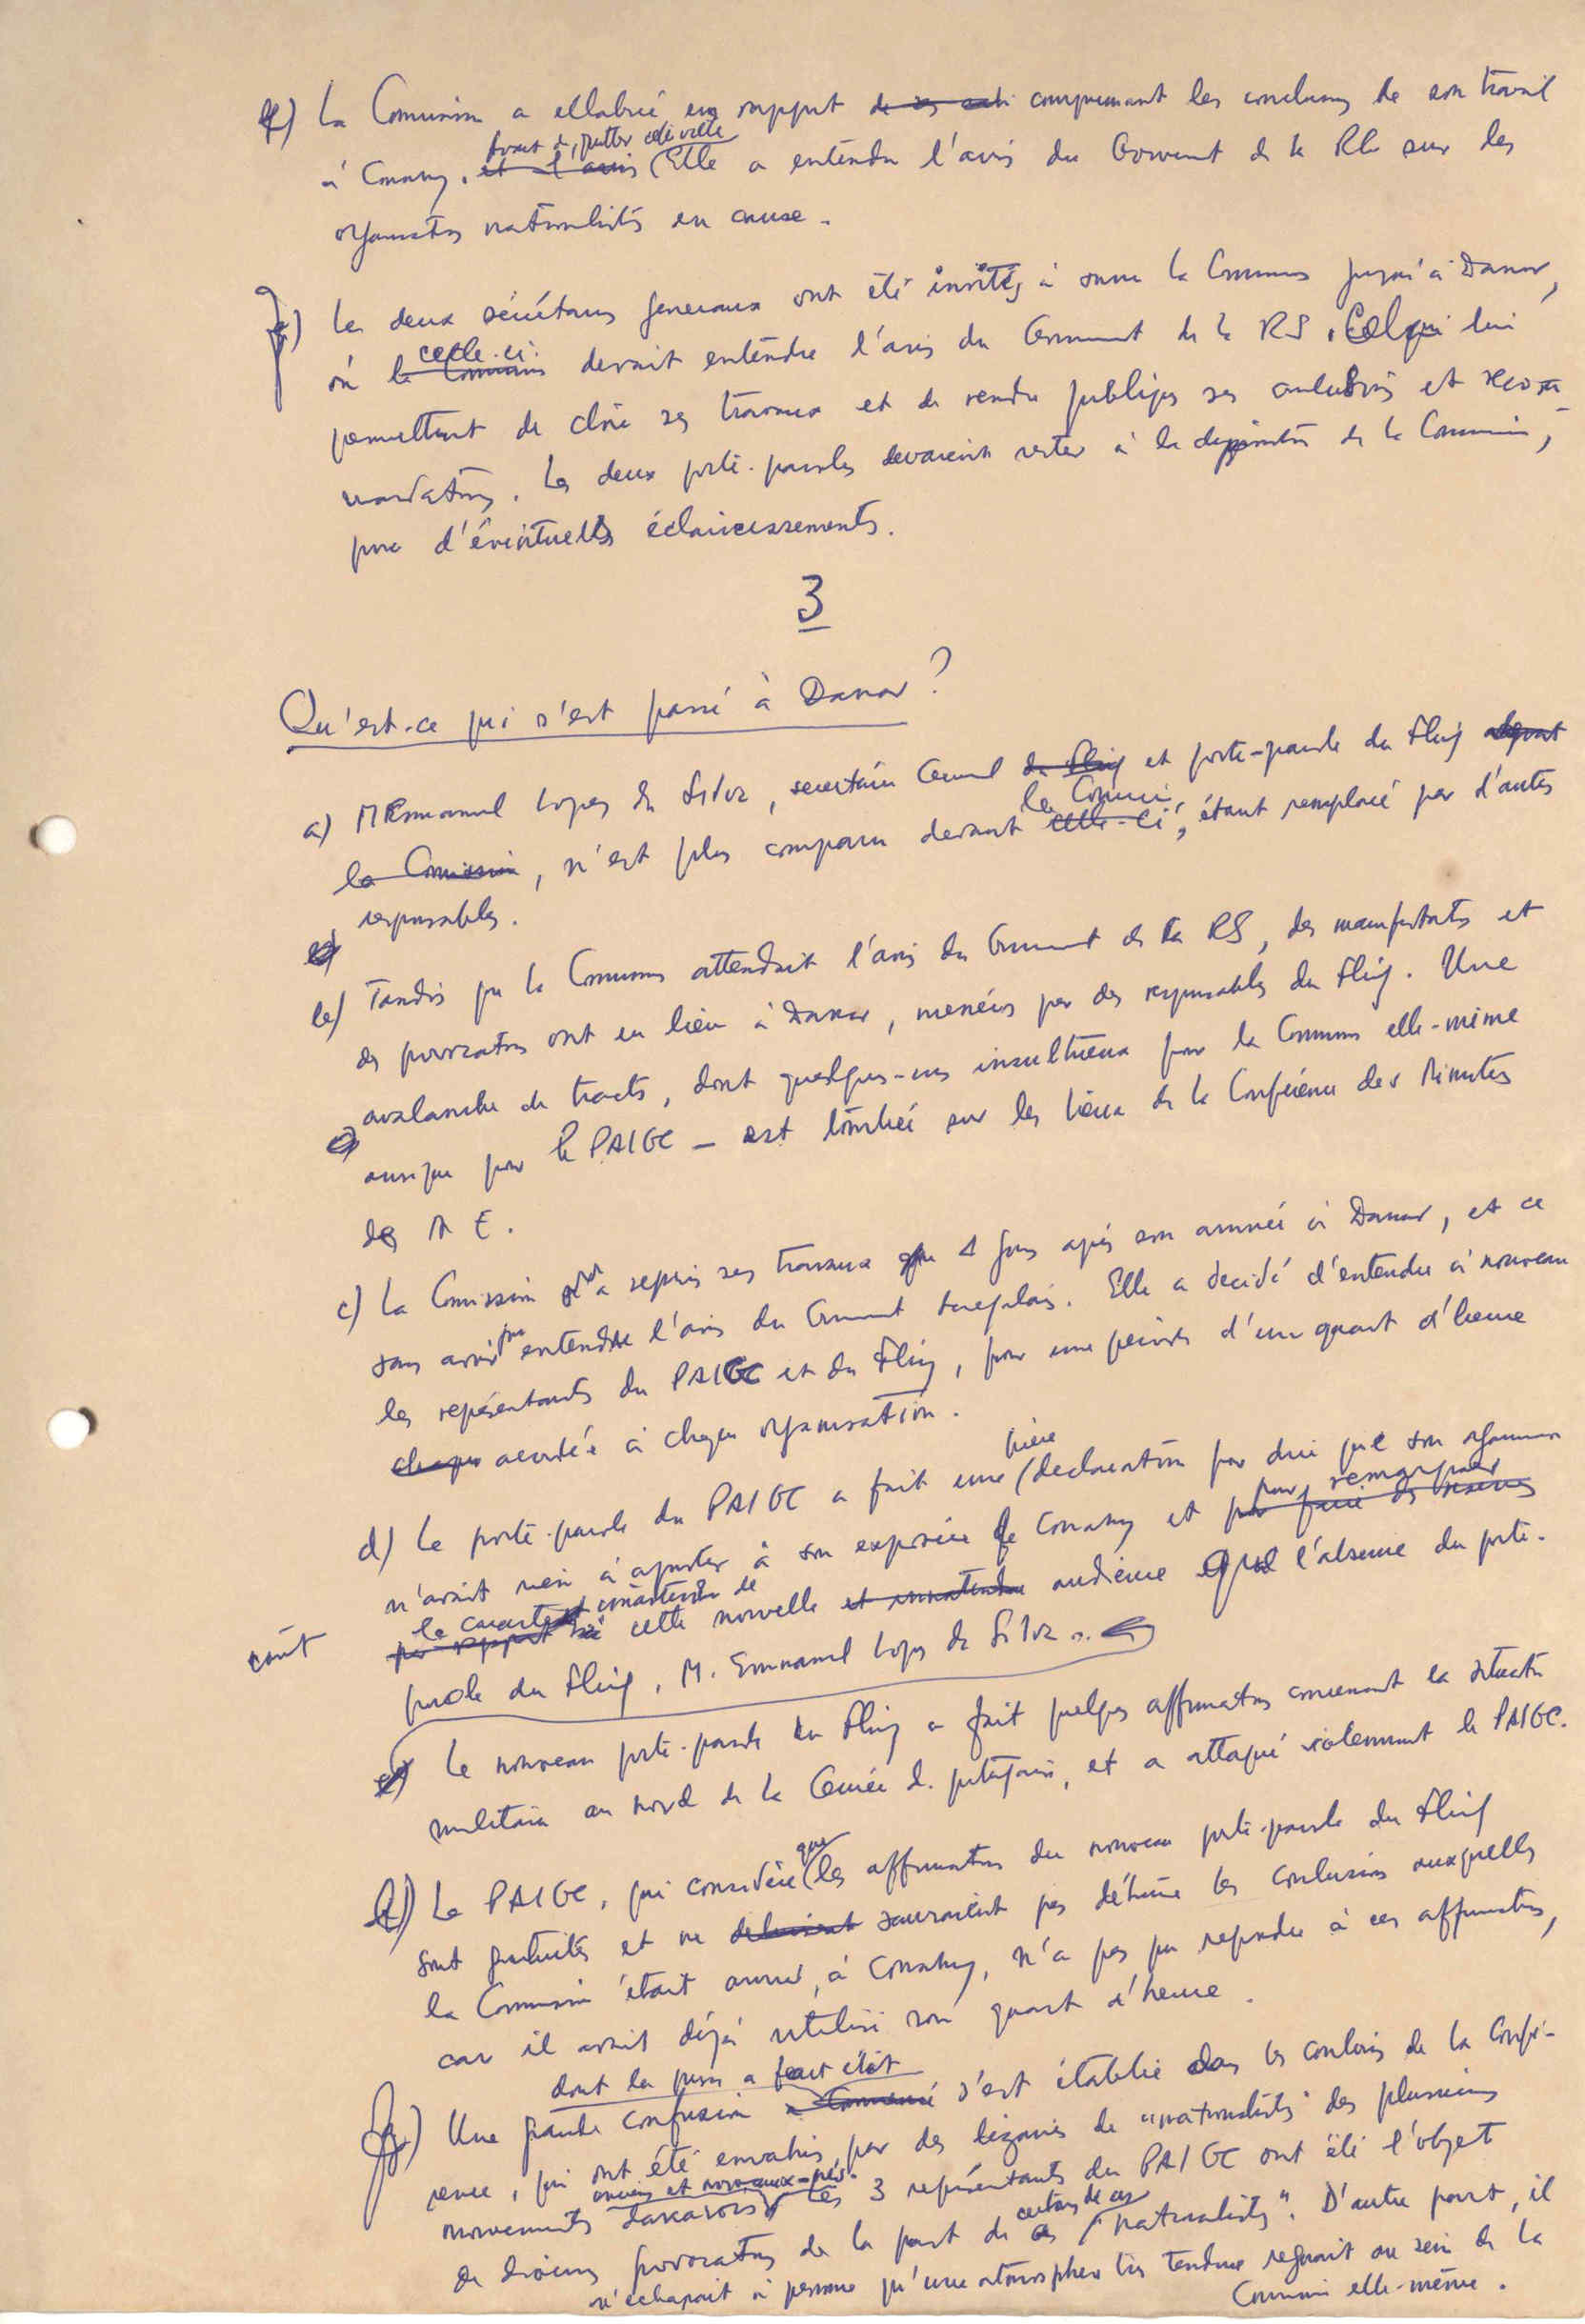 f) La Comission a ellabré un rapport de ses comprennant les conclusions de son travail
Avant de quitter cette ville
à Conakry. et l'avis Elle a entendu l'avis du Gouvernt de la RG sur les
organisatns nationalistes en cause.
g) Les deux secrétaires generaux ont été invités à suivre la Commission jusqu'à Dakar,
celle-ci
où la Commission devait entendre l'avis du Gouvernment de la RS. Cel qui lui
permettant de clore ses travaux et de rendre publiques ses conclusions et recom
mandatns. Les deux porte-paroles devaient rester à la disposition de la Commission,
pour d'éventuells éclaircissements.
3
Qu'est-ce qui s'est passé à Dakar?
a) M Emmanuel Lopes da Silva, secretaire General du Fling et porte-parole du Fling devant
la Comission
la Comission, n'est plus comparu devant celle-ci, étant remplacé par d'autes
responsables.
b) Tandis que la Commission attendait l'avis du Gouvernment de la RS, des manifestatns et
des provocatns ont eu lieu à Dakar, menées par des responsables du Fling. Une
avalanche de tracts, dont quelques-uns insultueux pour la Commission elle-même
ausi que pour le PAIGC — est tombée sur les lieux de la Conférence des Ministes
des A E.
c) La Comission a repris ses travaux 4 jours après son arrivée à Dakar, et ce
pu
sans avoir entendre l'avis du Gouvernment senegalais. Elle a decidé d'entendre à nouveau
les représentants du PAIGC et du Fling, pour une période d'un quart d'heure
chaque accordée à chaque organisation.
brève
d) Le porte-parole du PAIGC a fait une declaration pour dire que son organisation
pour remarquer
n'avait rien à ajouter à son exposée de Conakry et pour faire des reserves
le caractère de
par rapport à cette nouvelle et innatendue audience l'absence du porte-
parole du Fling, M. Emmanuel Lopes da Silva.
e) Le nouveau porte-parole du Fling a fait quelques affirmatns concernant la situatn
militaire au nord de la Guinée d. portugaise, et a attaqué violemment le PAIGC.
que
Le PAIGC, qui considère les affirmatns du nouveau porte-parole du Fling
sont gratuites et ne sauraient pas détruire les conclusions auxquelles
la Commission était arrivé, à Conakry, n'a pas pu repondre à ces affirmatns,
car il avait déjà utilisé son quart d'heure.
dont la presse a fait écho
g) Une grande confusion a commencé s'est établie dans les couloirs de la Confé-
rence, qui ont été envahis par des dizaines de "nationalistes" des plusieurs
anciens et nouveaux-nés.
mouvements dakarois Les 3 représentants du PAIGC ont été l'objet
certains de ces
de diverses provocatns de la part de "nationalistes". D'autre part, il
n'échapait à personne qu'une atmosphere très tendue regnait au sein de la
Commission elle-même.